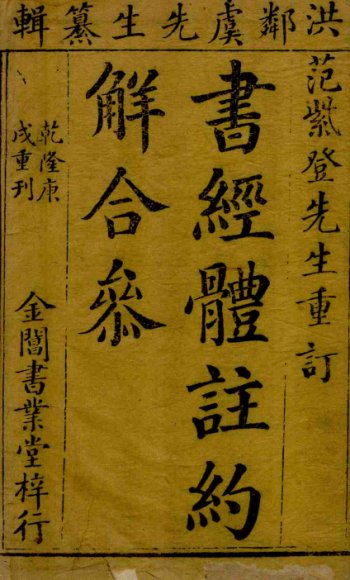 洪鄰虞先生纂輯
范紫登先生重訂
書經體註約
解合叅
乾隆庚
戌重刊
金閶書業堂梓行